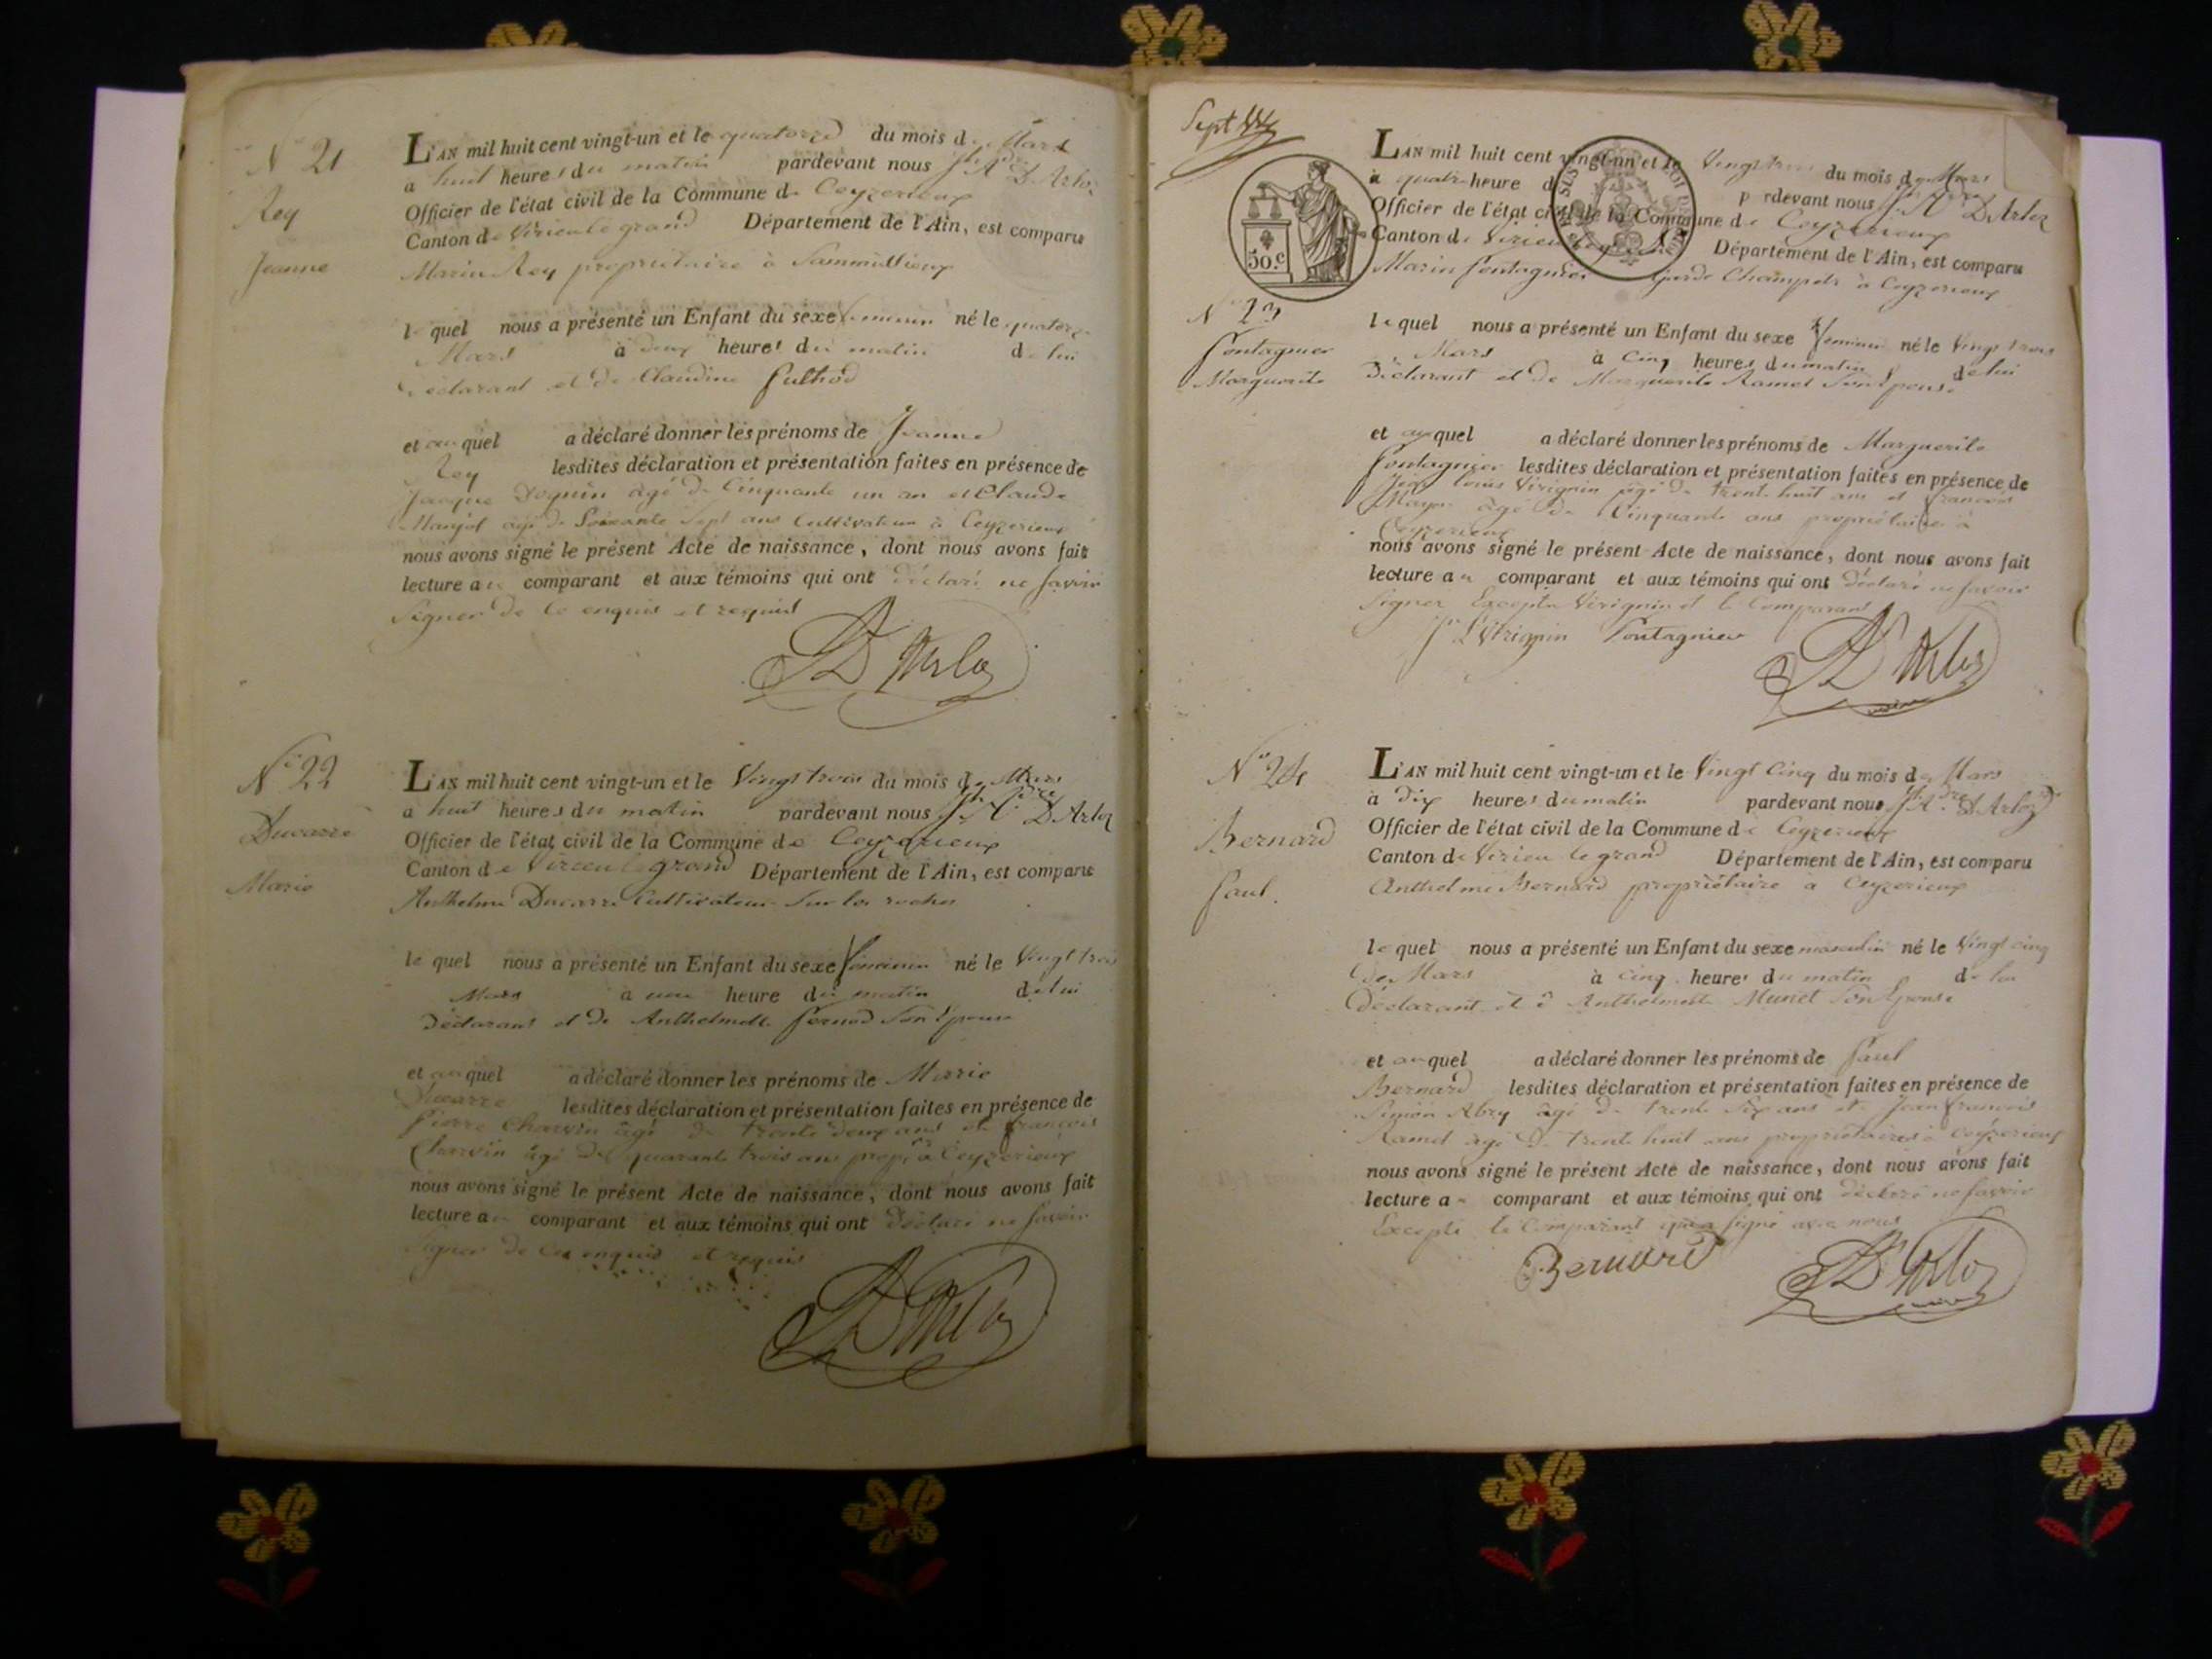 N° 21
Rey
Jeanne
L'AN mil huit cent vingt-un et le quatorze du mois de Mars
a huit heures du matin pardevant nous Jh. Adre D'Arloz
Officier de l'état civil de la Commune de Ceyzerieux
Canton de Virieu le grand Département de l'Ain, est comparu
Marin Rey propriétaire à
le quel nous a présenté un Enfant du sexe feminin né le quatorze
Mars à deux heures du matin de lui
déclarant et de Claudine
et au quel a déclaré donner les prénoms de Jeanne
Rey lesdites déclaration et présentation faites en présence de
Jacque agé de Cinquante un an et Claude
agé de Soixante Sept ans Cultivateur à Ceyzerieux
nous avons signé le présent Acte de naissance, dont nous avons fait
lecture au comparant et aux témoins qui ont déclaré ne savoir
Signer de ce enquis et requis
D'Arloz
N° 22
Ducarre
Marie
L'AN mil huit cent vingt-un et le Vingt trois du mois de Mars
a huit heures du matin pardevant nous Jh. Adre D'Arloz
Officier de l'état civil de la Commune de Ceyzerieux
Canton de Virieu le grand Département de l'Ain, est comparu
Anthelme Ducarre Cultivateur Sur les roches
le quel nous a présenté un Enfant du sexe féminin né le Vingt trois
Mars à une heure du matin de lui
déclarant et de Anthelmette Pernod Son Epouse
et au quel a déclaré donner les prénoms de Marie
Ducarre lesdites déclaration et présentation faites en présence de
Pierre Charvin âgé de trente deux ans et françois
Charvin âgé de quarante trois ans propre à Ceyzerieux
nous avons signé le présent Acte de naissance, dont nous avons fait
lecture au comparant et aux témoins qui ont déclaré ne savoir
Signer de ce enquis et requis
D'Arloz
Sept
50.c
N° 23
Pontagnier
Marguerite
L'AN mil huit cent vingt-un et le Vingt trois du mois de Mars
à quatre heure d pardevant nous Jh. Adre D'Arloz
Officier de l'état civil de la Commune de Ceyzerieux
Canton de Virieu le grand Département de l'Ain, est comparu
Marin Pontagnier Garde Champetre à Ceyzerieux
le quel nous a présenté un Enfant du sexe feminin né le Vingt trois
Mars à cinq heures du matin de lui
déclarant et de Marguerite Ramel Son Epouse
et au quel a déclaré donner les prénoms de Marguerite
Pontagnier lesdites déclaration et présentation faites en présence de
Jean Louis Virignin agé de trente huit ans et francois
agé de Cinquante ans propriétaires à
Ceyzerieux
nous avons signé le présent Acte de naissance, dont nous avons fait
lecture au comparant et aux témoins qui ont déclaré ne savoir
Signer Excepté Virignin et le Comparant
Jn L Virignin Pontagnier
D'Arloz
N° 24
Bernard
Paul.
L'AN mil huit cent vingt-un et le Vingt Cinq du mois de Mars
à dix heures du matin pardevant nous Jh. Adre D'Arloz
Officier de l'état civil de la Commune de Ceyzerieux
Canton de Virieu le grand Département de l'Ain, est comparu
Anthelme Bernard propriétaire à Ceyzerieux
le quel nous a présenté un Enfant du sexe masculin né le Vingt cinq
de Mars à cinq heures du matin de lui
déclarant et d' Anthelmette Munet Son Epouse
et au quel a déclaré donner les prénoms de Paul
Bernard lesdites déclaration et présentation faites en présence de
Simon Abry âgé de trente Six ans et Jean francois
Ramel âgé de trente huit ans propriétaires à Ceyzerieux
nous avons signé le présent Acte de naissance, dont nous avons fait
lecture au comparant et aux témoins qui ont déclaré ne savoir
Excepté le Comparant qui a signé avec nous
Bernard
D'Arloz